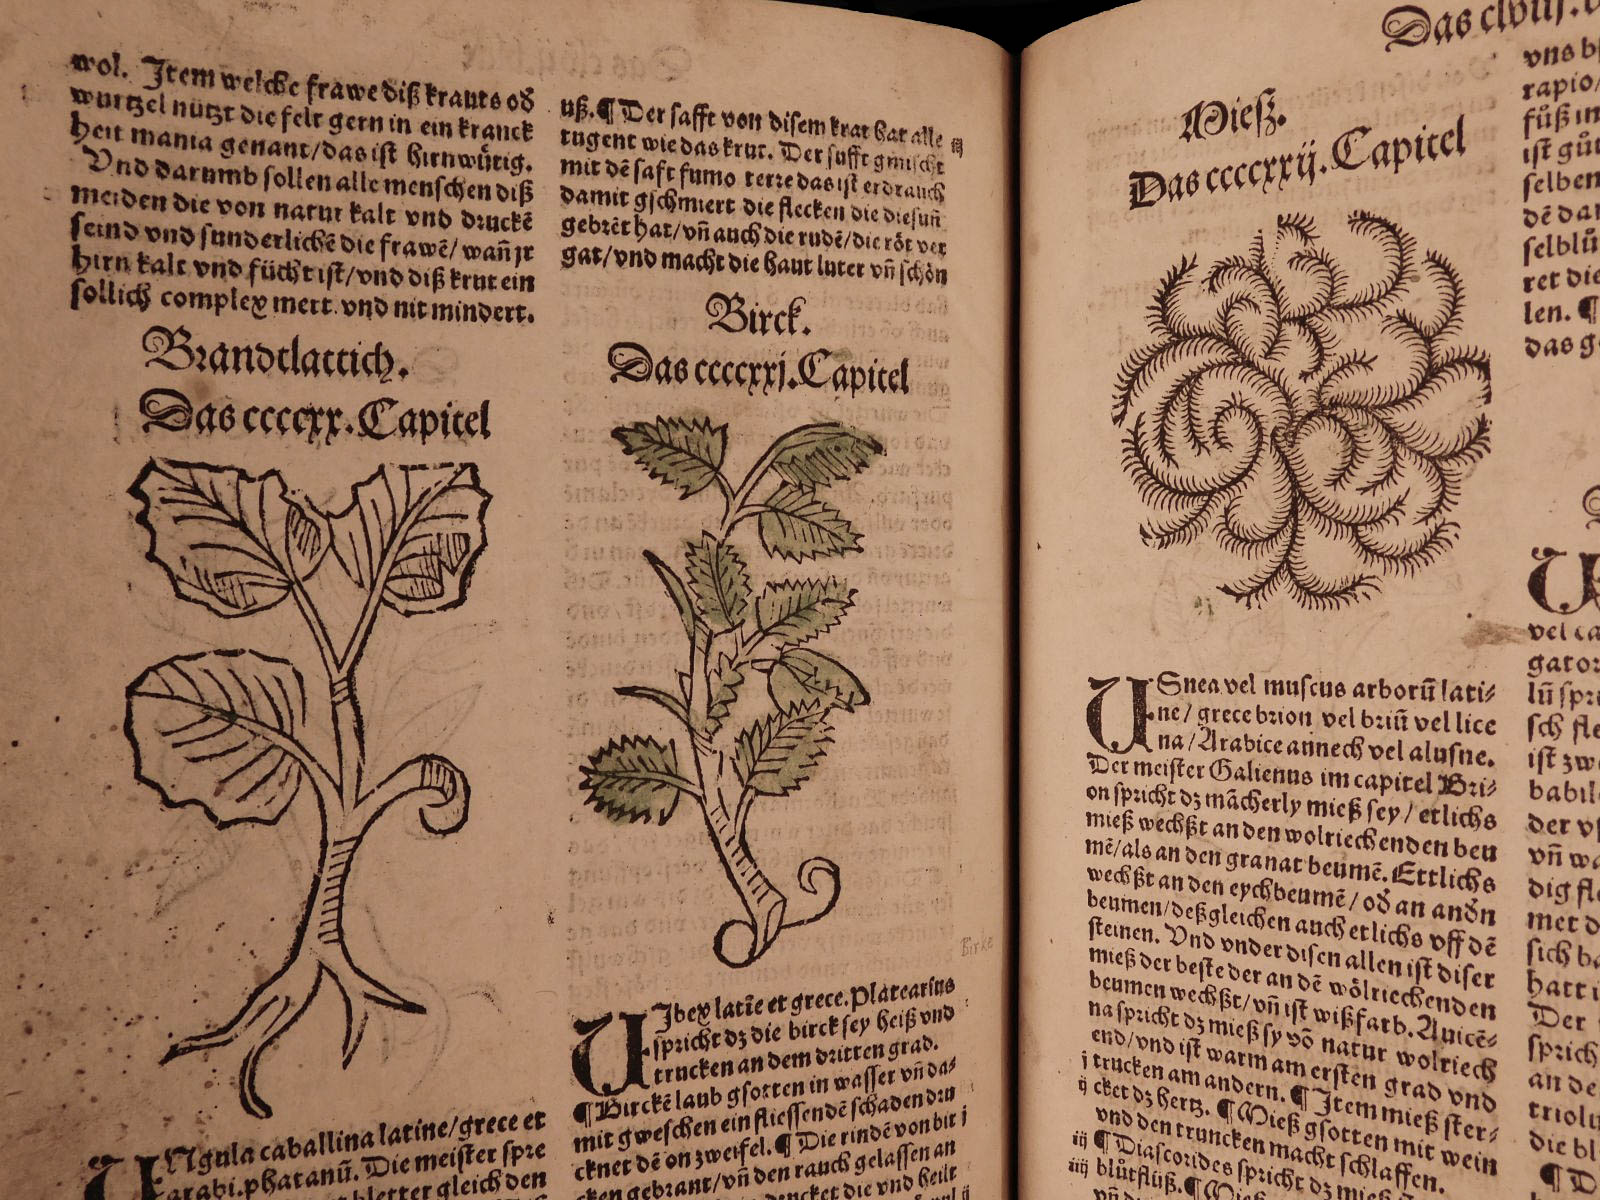 wol. Jtem welche frawe diß krauts oď
wurtzel nützt die felt gern in ein kranck
heit mania genant/das ist hirnwütig.
Vnd darumb sollen alle menschen diß
meiden die von natur kalt vnd druckē
seind vnd sunderlichē die frawē/wañ jr
hirn kalt vnd fücht ist/vnd diß krut ein
sollich complex mert vnd nit mindert.
Brandtlattich.
Das ccccxx. Capitel
UNgula caballina latine/grece et
arabi. phatanū. Die meister spre
bletter gleich den
uß. ¶ Der safft von disem krat hat alle iij
tugent wie das krut. Der safft gmischt
mit dē saft fumo terre das ist erdrauch
damit gschmiert die flecken die die suñ
gebrēt hat/vñ auch die rudē/die röt ver
gat/vnd macht die haut luter vñ schön
Birck.
Das ccccxxj. Capitel
Birke
UJbex latīe et grece. Platearius
spricht dz die birck sey heiß vnd
trucken an dem dritten grad.
¶ Birckē laub gsotten in wasser vñ da-
mit gweschen ein fliessendē schaden dru j
cknet dē on zweifel. ¶ Die rindē von bir
cken gebrant/vñ den rauch gelassen an
die vnd heilt
Miesz.
Das ccccxxij. Capitel
USnea vel muscus arborū lati-
ne/grece brion vel briū vel lice
na/Arabice annech vel alusne.
Der meister Galienus im capitel Bri-
on spricht dz mācherly mieß sey/etlichs
mieß wechßt an den wolriechenden beu
mē/als an den granat beumē. Ettlichs
wechßt an den eychbeumē/oď an andn
beumen/deßgleichen auch etlichs vff dē
steinen. Vnd vnder disen allen ist diser
mieß der beste der an dē wölriechenden
beumen wechßt/vñ ist wißfarb. Auicē-
na spricht dz mieß sy vō natur wolriech
end/vnd ist warm am ersten grad vnd
j trucken am andern. ¶ Jtem mieß ster-
ij cket dz hertz. ¶ Mieß gsotten mit wein
vnd den truncken macht schlaffen.
iij ¶ Diascorides spricht dz mieß
iiij blůtflüß. ¶ Mieß
Das
vns
rapio/
füß in
ist gůt
selben
dē
selblů
ret die
len. ¶
das
U
vel ca
gator
lū spri
sch fle
ist zw
babil
der
vñ wa
dig
met d
sich
hatt
Der
sprich
an de
triol
die bl
¶ D